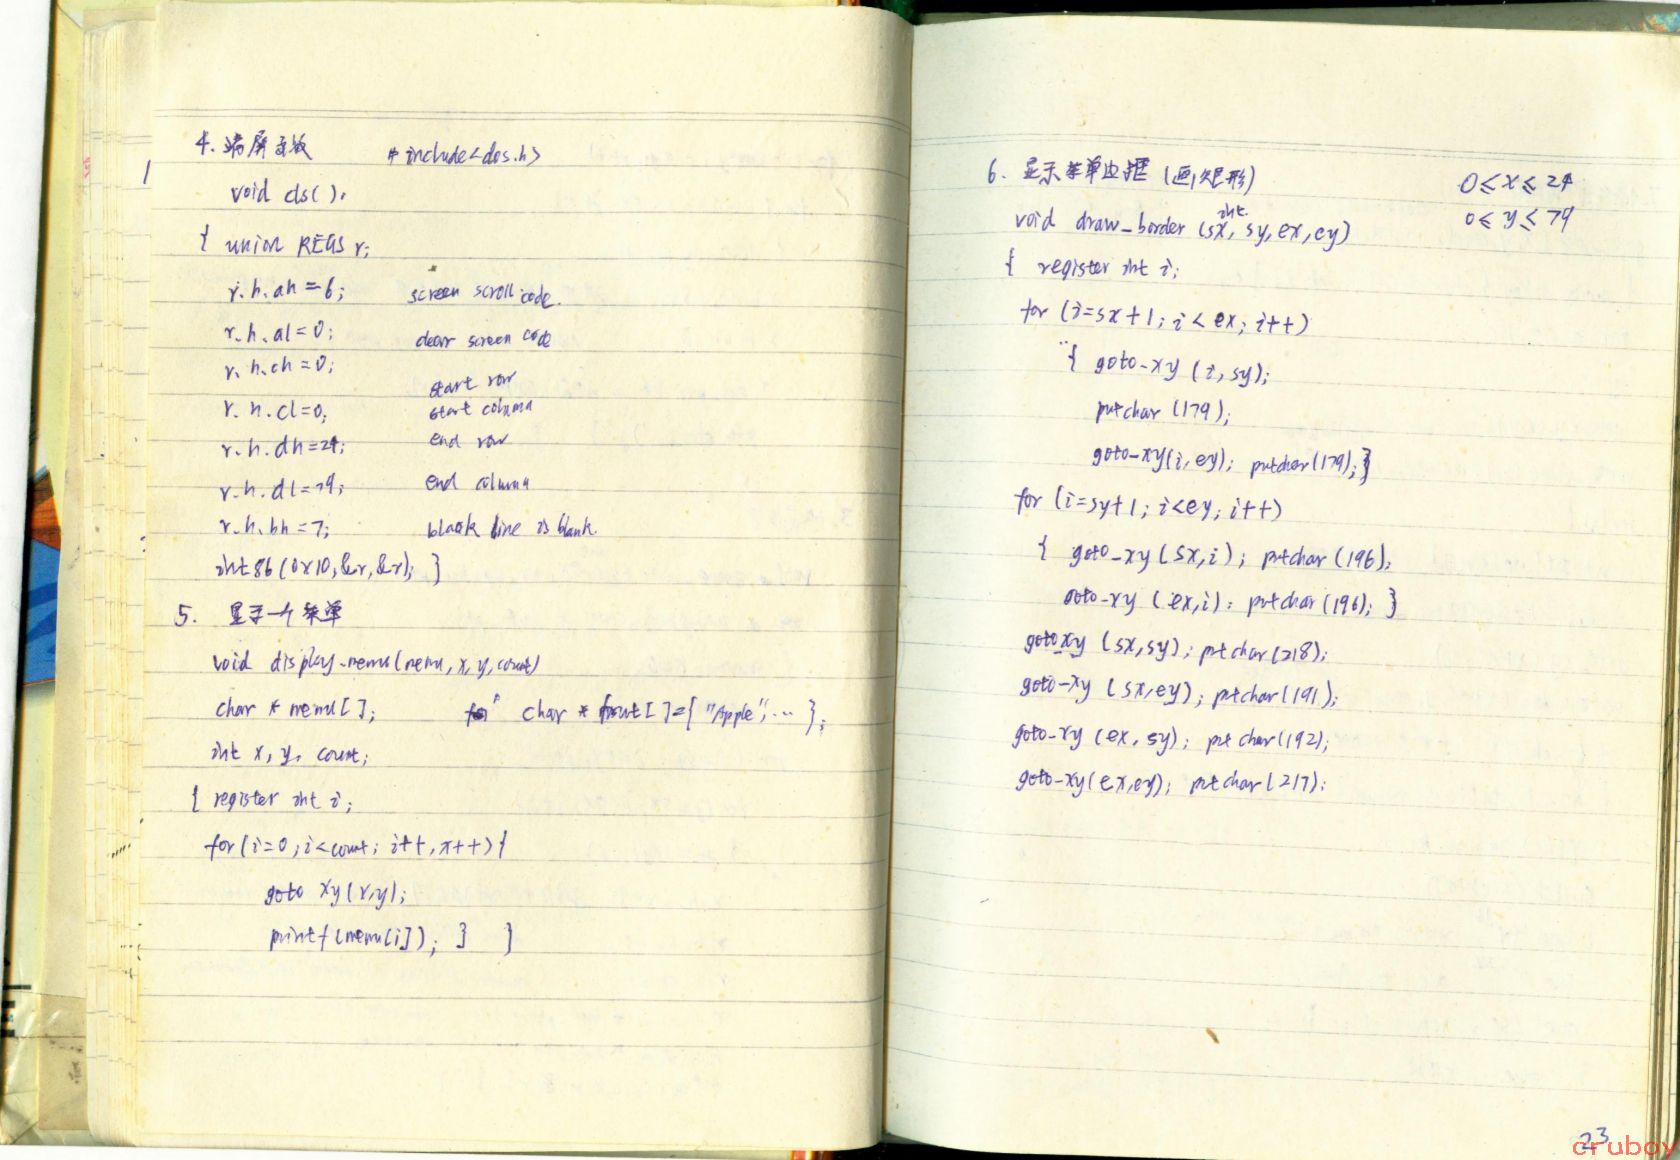 4. 清屏函数 #include<dos.h>
void cls().
{ union REGS r;
r.h.ah=6; screen scroll code.
r.h.al=0; clear screen code
r.h.ch=0; start row
r.h.cl=0; start column
r.h.dh=24; end row
r.h.dl=79; end column
r.h.bh=7; blank line is blank
int86(0x10,&r,&r); }
5. 显示一个菜单
void display-menu(menu,x,y,count)
char * menu[]; char * fruit[]={"Apple",... };
int x, y, count;
{ register int i;
for(i=0;i<count; i++,x++){
goto xy(x,y);
printf(menu[i]); } }
6. 显示菜单边框(画矩形) 0≤x≤24
0≤y≤79
int
void draw_border (sx, sy, ex, ey)
{ register int i;
for (i=sx+1; i<ex; i++)
{ goto-xy (i, sy);
putchar (179);
goto-xy(i, ey); putchar(179); }
for (i=sy+1; i<ey; i++)
{ goto-xy(sx,i); putchar(196);
goto-xy (ex,i); putchar(196); }
goto xy (sx,sy); putchar(218);
goto-xy (sx,ey); putchar(191);
goto-xy (ex, sy); putchar(192);
goto-xy(ex,ey); putchar(217);
23
cruboy